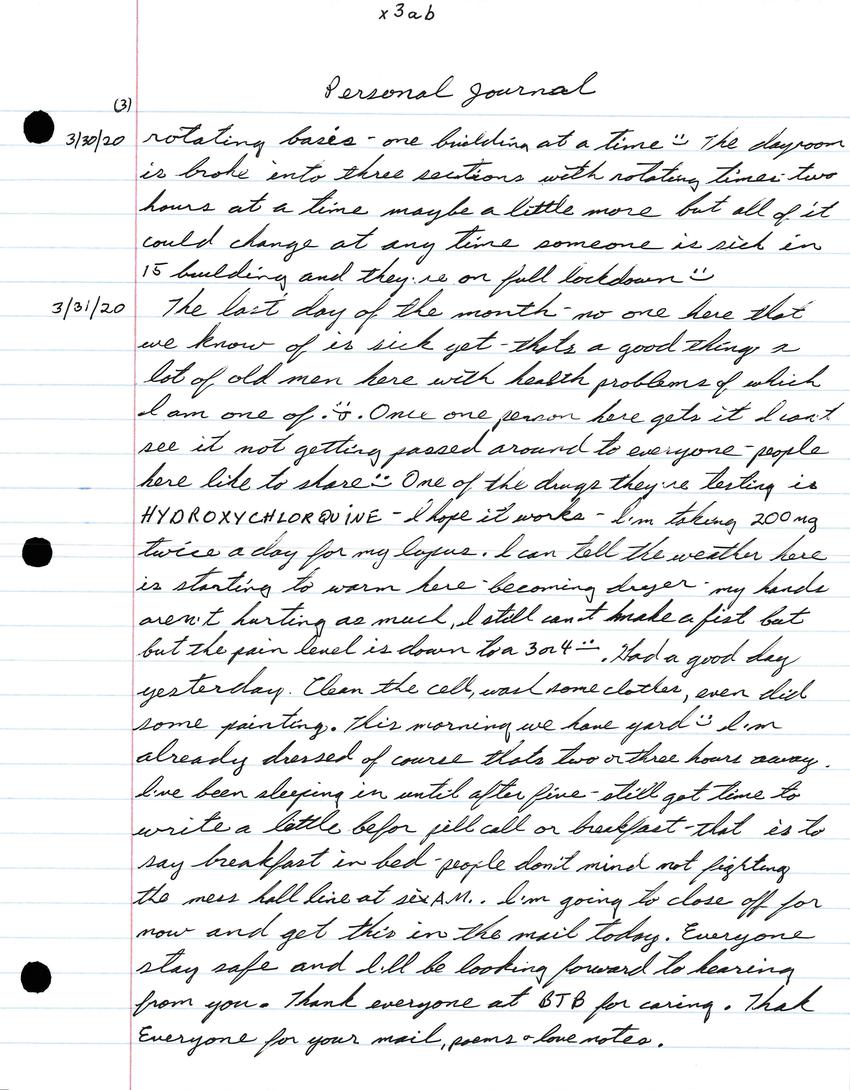 x3ab
Personal Journal
(3)
3/30/20 rotating bases - one building at a time :) The dayroom
is broke into three sections with rotating times - two
hours at a time maybe a little more but all of it
could change at any time someone is sick in
15 building and they're on full lockdown :)
3/31/20 The last day of the month - no one here that
we know of is sick yet - thats a good thing a
lot of old men here with health problems of which
I am one of . :) . Once one person here gets it I can't
see it not getting passed around to everyone - people
here like to share :) One of the drugs they're testing is
HYDROXYCHLORQUINE - I hope it works - I'm taking 200mg
twice a day for my lupus. I can tell the weather here
is starting to warm here - becoming dryer - my hands
aren't hurting as much, I still can't make a fist but
but the pain level is down to a 3 or 4 :) . Had a good day
yesterday. Clean the cell, wash some clothes, even did
some painting. This morning we have yard :) I'm
already dressed of course thats two or three hours away.
I've been sleeping in until after five - still got time to
write a little befor pill call or breakfast - that is to
say breakfast in bed - people don't mind not fighting
the mess hall line at six A.M.. I'm going to close off for
now and get this in the mail today. Everyone
stay safe and I'll be looking forward to hearing
from you. Thank everyone at BTB for caring. Thak
Everyone for your mail, poems & love notes.